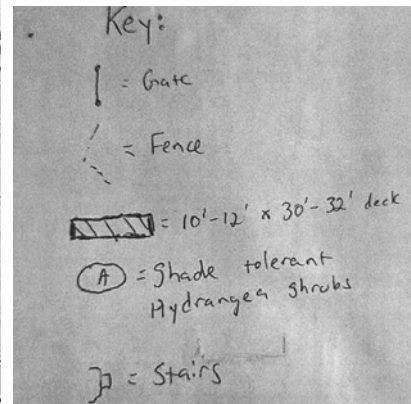 Key:
= Gate
= Fence
= 10'-12' x 30'-32' deck
A = Shade tolerant
Hydrangea shrubs
= Stairs